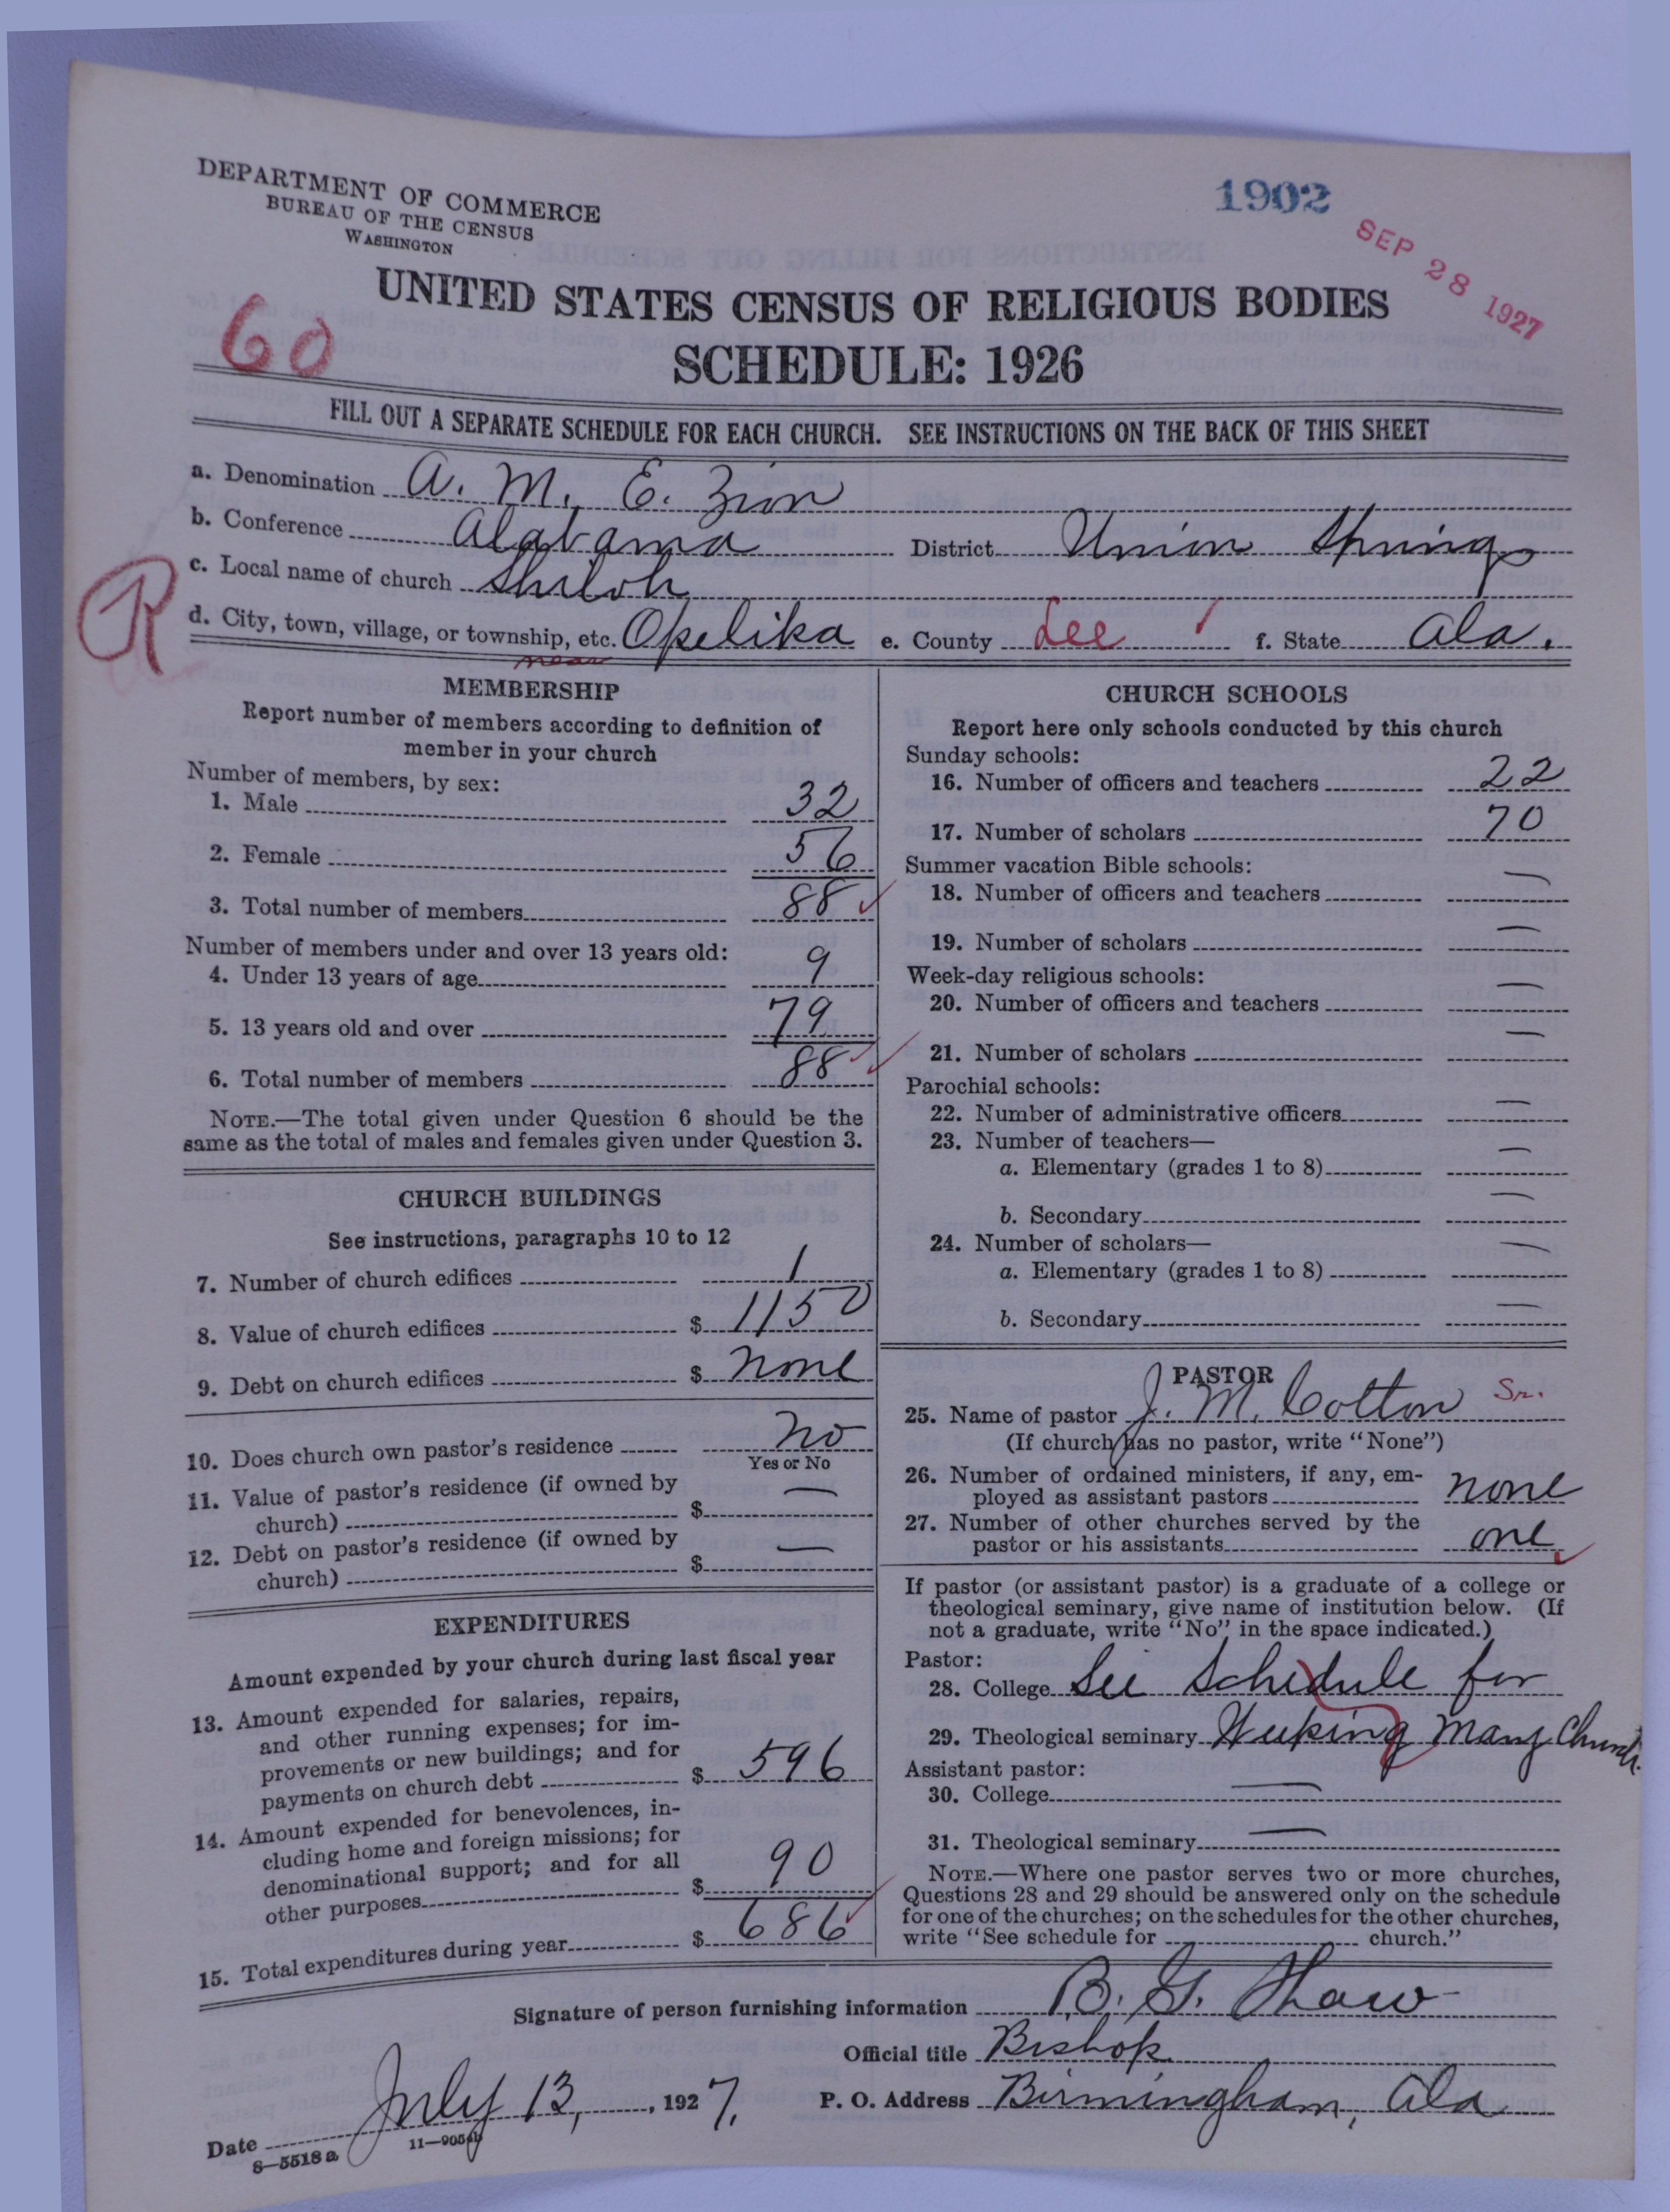 DEPARTMENT OF COMMERCE
BUREAU OF THE CENSUS
WASHINGTON
1902
SEP 28 1927
60
UNITED STATES CENSUS OF RELIGIOUS BODIES
SCHEDULE: 1926
FILL OUT A SEPARATE SCHEDULE FOR EACH CHURCH. SEE INSTRUCTIONS ON THE BACK OF THIS SHEET
a. Denomination A. M. E. Zion
b. Conference Alabama District Union Springs
c. Local name of church Shiloh
R
d. City, town, village, or township, etc. Opelika e. County Lee f. State Ala.
near
MEMBERSHIP
Report number of members according to definition of
member in your church
Number of members, by sex:
1. Male 32
2. Female 56
3. Total number of members 88
Number of members under and over 13 years old:
4. Under 13 years of age 9
5. 13 years old and over 79
6. Total number of members 88
NOTE.—The total given under Question 6 should be the
same as the total of males and females given under Question 3.
CHURCH BUILDINGS
See instructions, paragraphs 10 to 12
7. Number of church edifices 1
8. Value of church edifices $ 1150
9. Debt on church edifices $ none
10. Does church own pastor's residence No
Yes or No
11. Value of pastor's residence (if owned by
church) $ —
12. Debt on pastor's residence (if owned by
church) $ —
EXPENDITURES
Amount expended by your church during last fiscal year
13. Amount expended for salaries, repairs,
and other running expenses; for im-
provements or new buildings; and for
payments on church debt $ 596
14. Amount expended for benevolences, in-
cluding home and foreign missions; for
denominational support; and for all
other purposes $ 90
15. Total expenditures during year $ 686
CHURCH SCHOOLS
Report here only schools conducted by this church
Sunday schools:
16. Number of officers and teachers 22
17. Number of scholars 70
Summer vacation Bible schools:
18. Number of officers and teachers —
19. Number of scholars —
Week-day religious schools:
20. Number of officers and teachers —
21. Number of scholars —
Parochial schools:
22. Number of administrative officers —
23. Number of teachers—
a. Elementary (grades 1 to 8) —
b. Secondary —
24. Number of scholars—
a. Elementary (grades 1 to 8) —
b. Secondary —
PASTOR
25. Name of pastor J. M. Cotton Sr.
(If church has no pastor, write "None")
26. Number of ordained ministers, if any, em-
ployed as assistant pastors none
27. Number of other churches served by the
pastor or his assistants one
If pastor (or assistant pastor) is a graduate of a college or
theological seminary, give name of institution below. (If
not a graduate, write "No" in the space indicated.)
Pastor:
28. College See Schedule for
29. Theological seminary Weeping Mary Church.
Assistant pastor:
30. College —
31. Theological seminary —
NOTE.—Where one pastor serves two or more churches,
Questions 28 and 29 should be answered only on the schedule
for one of the churches; on the schedules for the other churches,
write "See schedule for church."
Signature of person furnishing information B. G. Shaw
Official title Bishop
Date July 13, 1927. P. O. Address Birmingham, Ala
8—5518 a 11—9054b